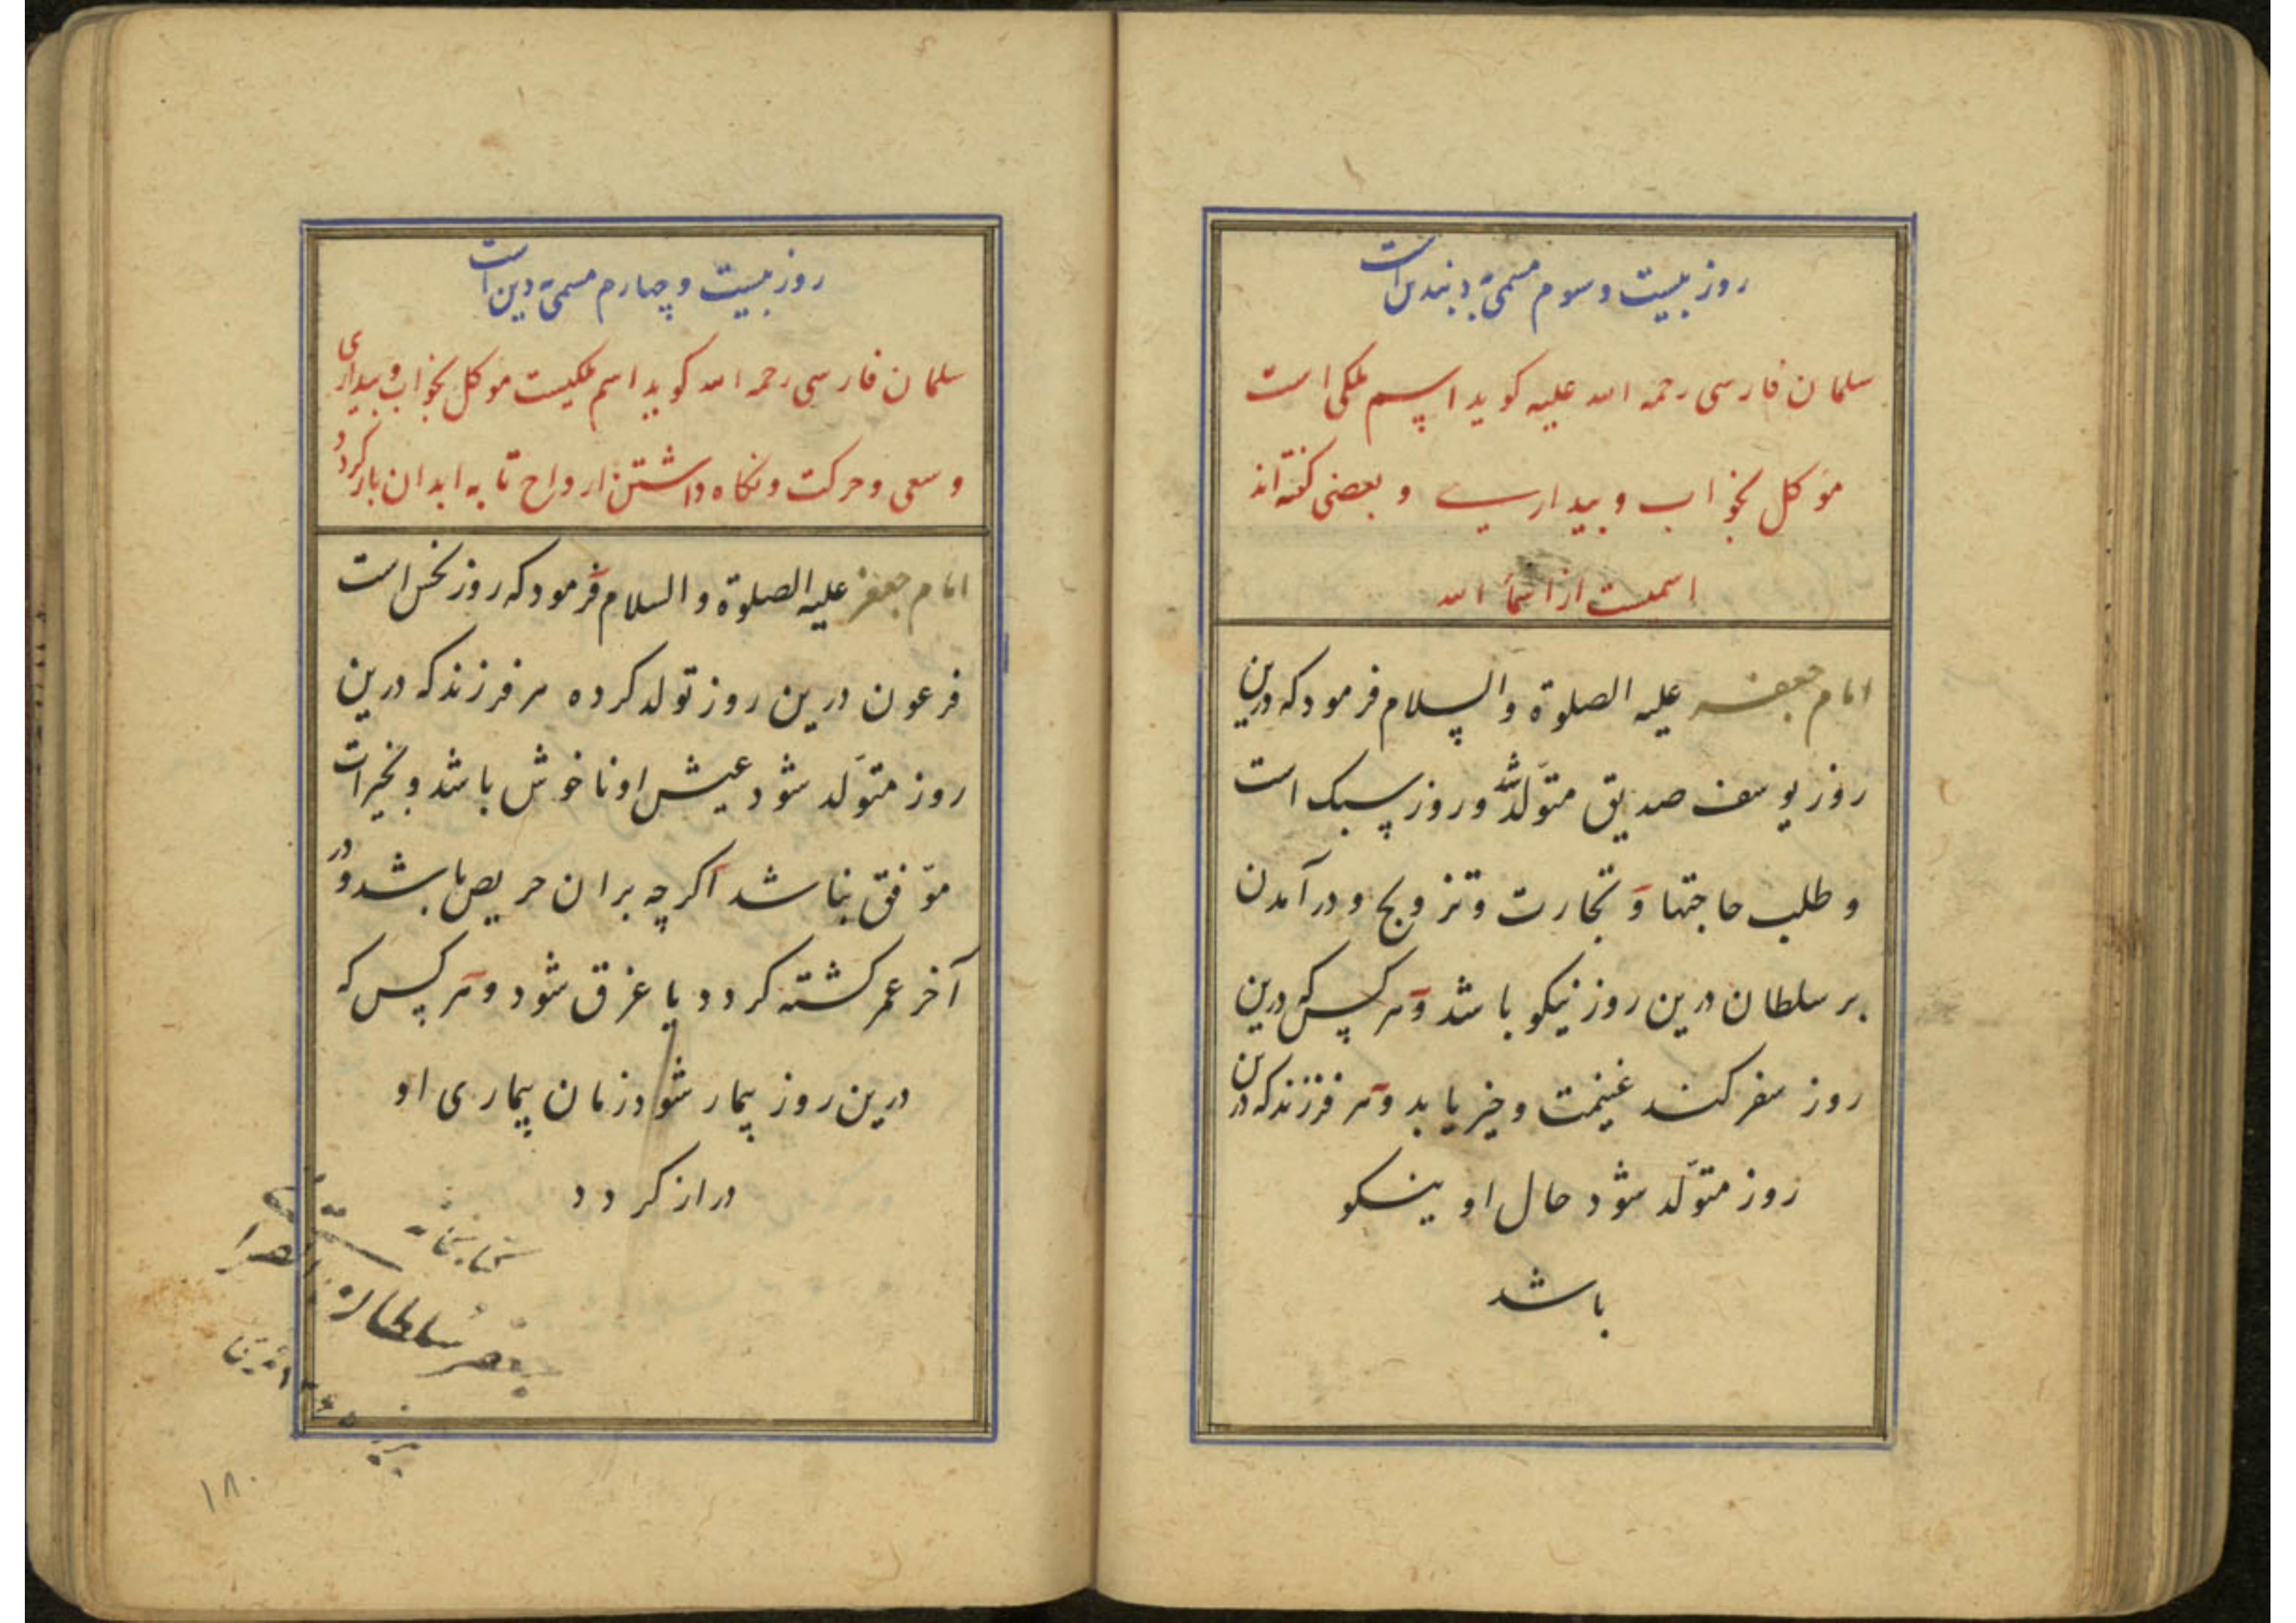 روز بیست و سوم مسمی به دیندین است
سلمان فارسی رحمه الله علیه کوید اسم ملکی است
موکل بخواب و بیداری و بعضی کفته اند
اسمیست از اسماء الله
امام جعفر علیه الصلوة والسلام فرمود که درین
روز یوسف صدیق متولد شد و روز سبک است
و طلب حاجتها و تجارت و تزویج و در آمدن
بر سلطان درین روز نیکو باشد و هر کس که درین
روز سفر کند غنیمت و خیر یابد و هر فرزند که درین
روز متولد شود حال او نیکو
باشد
روز بیست و چهارم مسمی به دین است
سلمان فارسی رحمه الله کوید اسم ملکیست موکل بخواب و بیداری
و سعی و حرکت و نکاه داشتن ارواح تا به ابدان باز کردد
امام جعفر علیه الصلوة والسلام فرمود که روز نحس است
فرعون درین روز تولد کرده هر فرزند که درین
روز متولد شود عیش او ناخوش باشد و بخیرات
موفق نباشد اکرچه بران حریص باشد و در
آخر عمر کشته کردد یا غرق شود و هر کس که
درین روز بیمار شود زمان بیماری او
دراز کردد
کتابخانه
سلطان
١٨٠